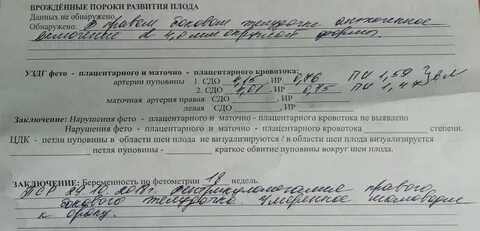 ВРОЖДЁННЫЕ ПОРОКИ РАЗВИТИЯ ПЛОДА
Данных не обнаружено
Обнаружено: в правом боковом желудочке анэхогенное
включение d 4,0 мм округлой формы.
УЗДГ фето - плацентарного и маточно - плацентарного кровотока:
артерии пуповины 1. СДО 4,15 ИР 0,76 ПИ 1,59
2. СДО 4,01 ИР 0,75 ПИ 1,47
маточная артерия правая СДО ИР
левая СДО ИР
Заключение: Нарушения фето - плацентарного и маточно - плацентарного кровотока не выявлено
Нарушения фето - плацентарного и маточно - плацентарного кровотока степени.
ЦДК - петли пуповины в области шеи плода не визуализируются / в области шеи плода визуализируется
петля пуповины - краткое обвитие пуповины вокруг шеи плода.
ЗАКЛЮЧЕНИЕ: Беременность по фетометрии 19 недель.
правого
бокового желудочка. Умеренное маловодие
к сроку.